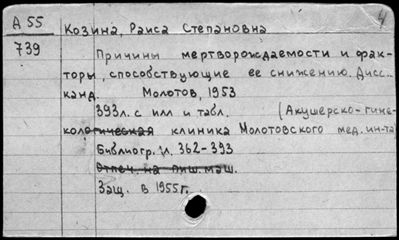 А 55 Козина, Раиса Степановна 4
739 Причины мертворождаемости и фак-
торы, способствующие ее снижению. Дисс.
канд. Молотов, 1953
393л. с илл и табл. (Акушерско-гине-
кологическая клиника Молотовского мед. ин-та
Библиогр. л. 362-393
Отпеч. на пиш. маш.
Защ. в 1955г.